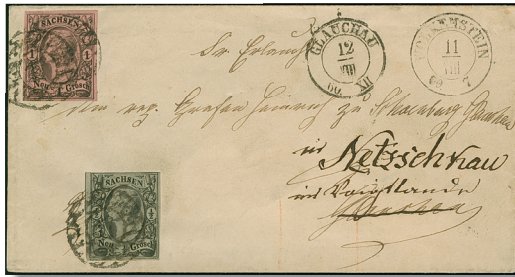 SACHSEN
1 1
Neu Grosch.
GLAUCHAU
12
VIII
60
11
VIII
60 7
Sr. Erlaucht
dem reg. Grafen Heinrich zu Schönburg
in Netzschkau
im Voigtlande
SACHSEN
Neu Grosch.